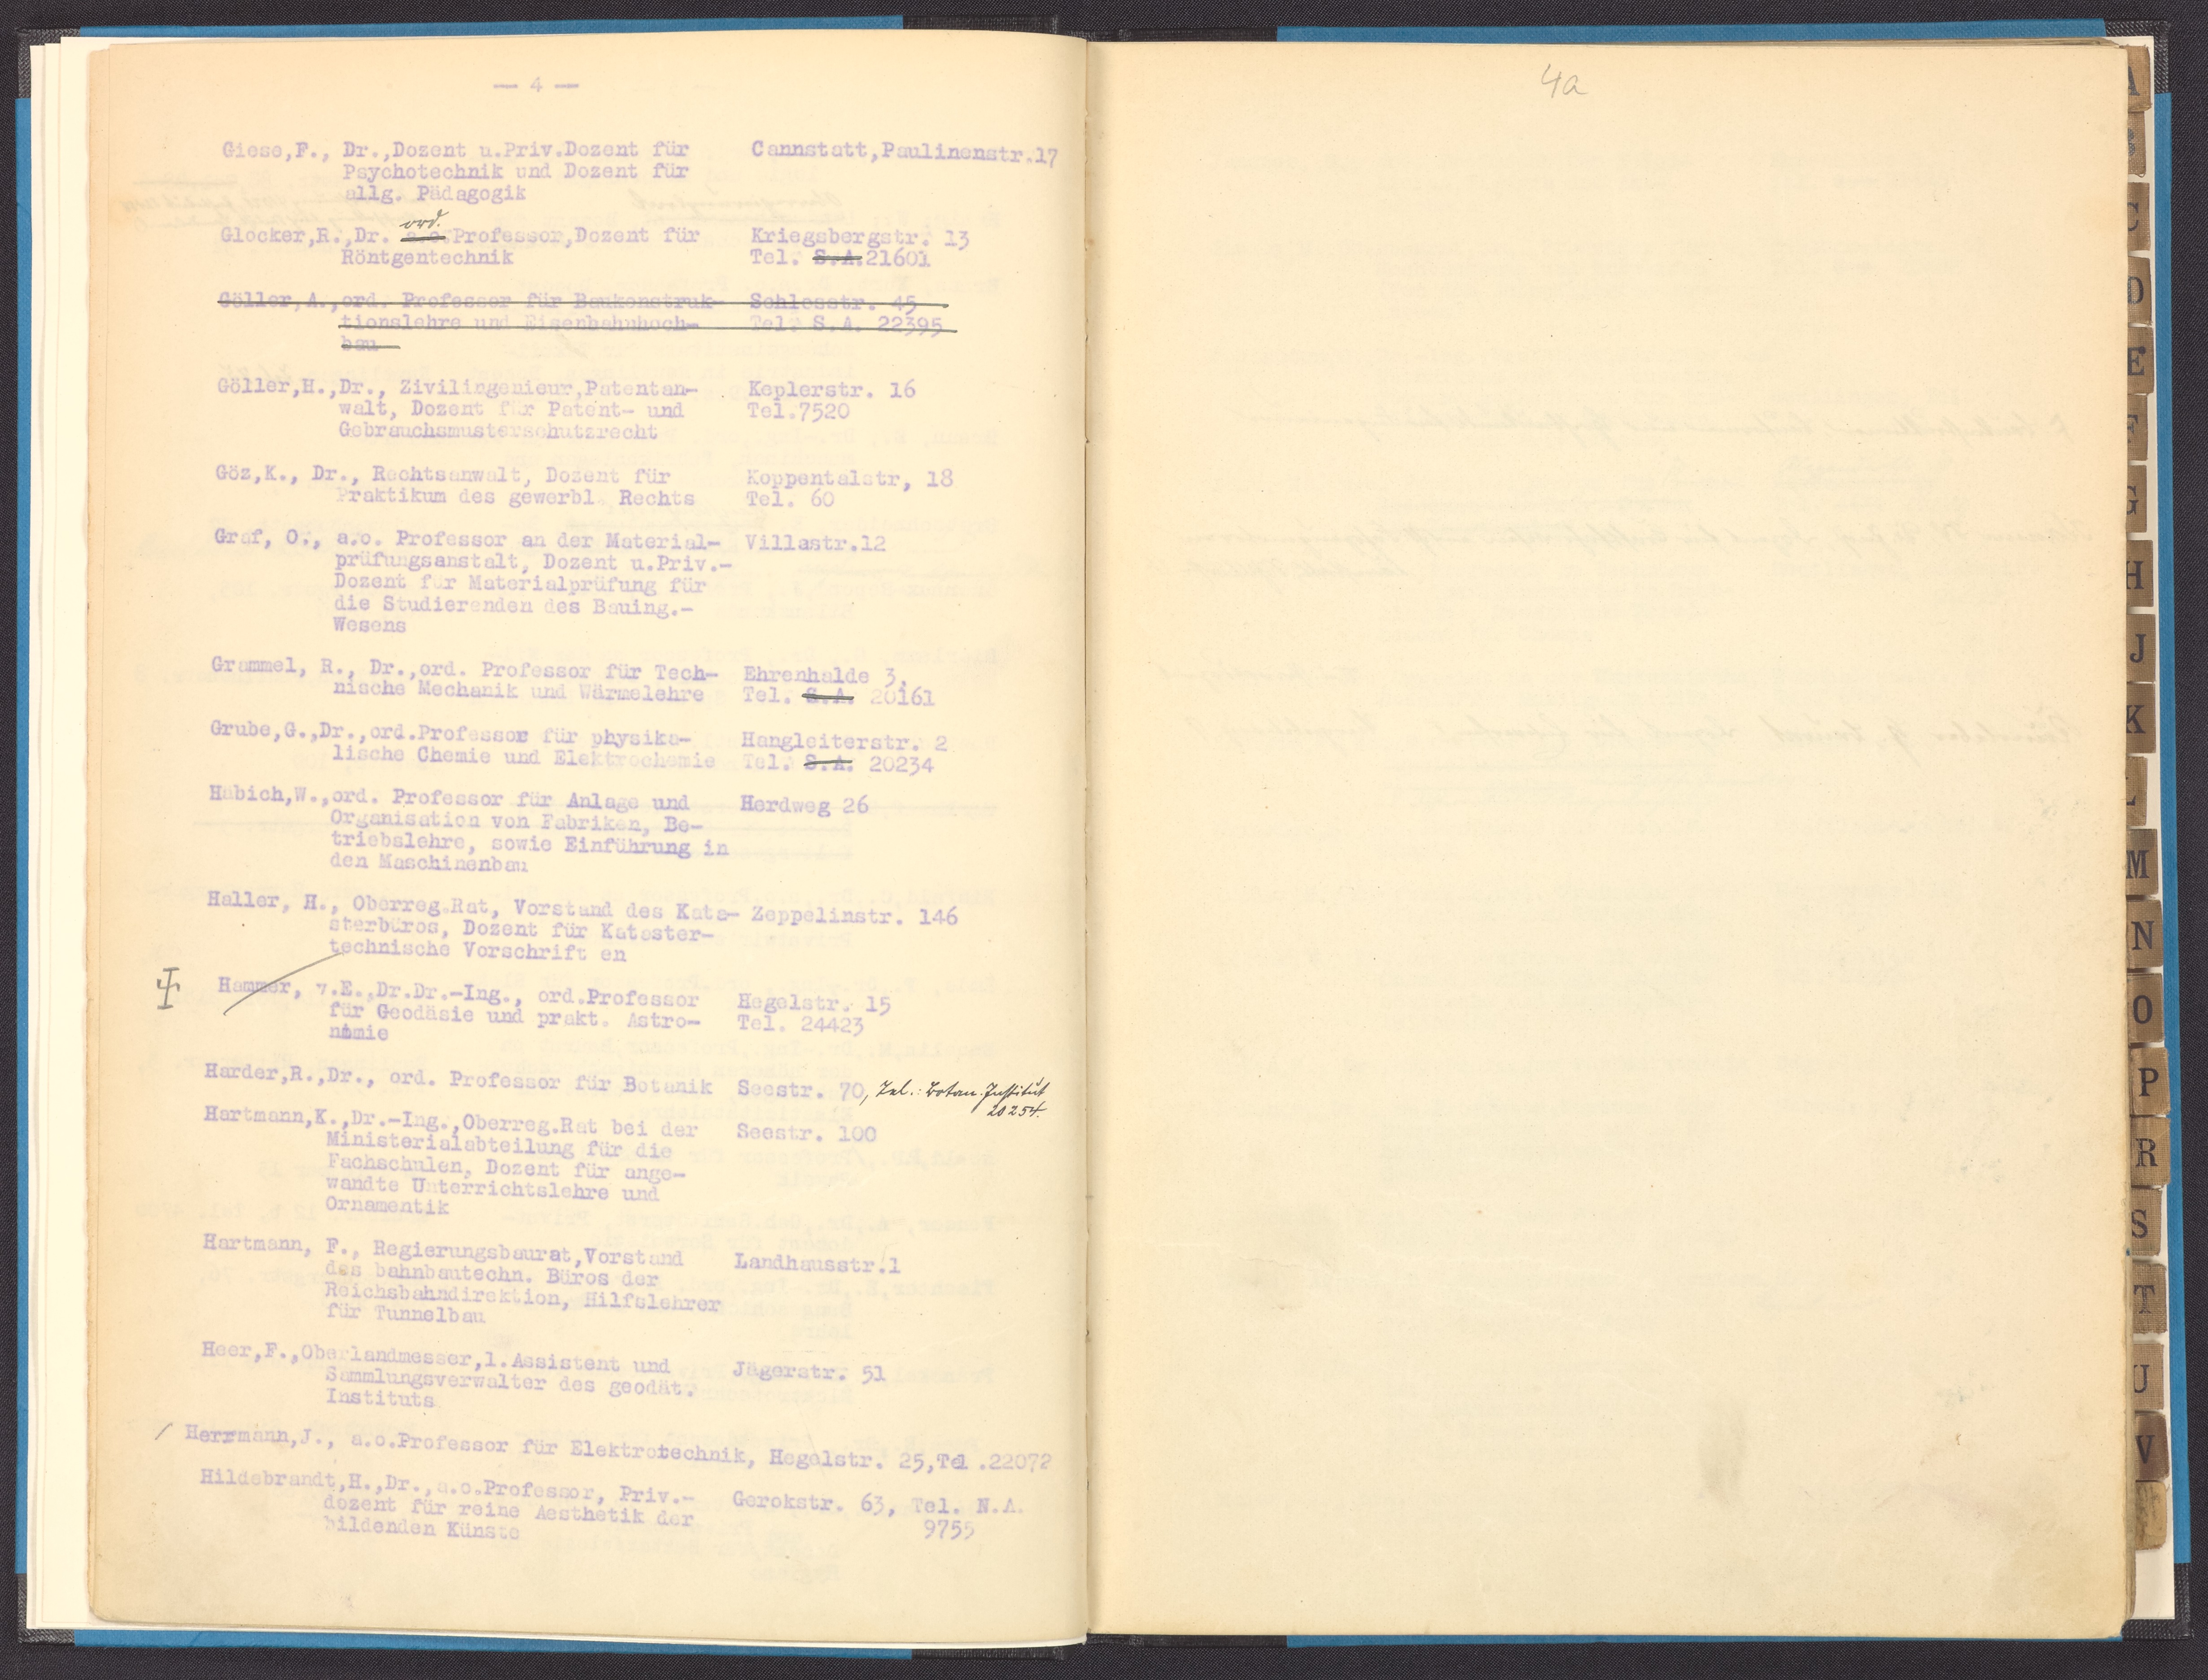 — 4 —
Giese,F., Dr.,Dozent u.Priv.Dozent für Cannstatt,Paulinenstr.17
Psychotechnik und Dozent für
allg. Pädagogik
ord.
Glocker,R.,Dr. a.o.Professor,Dozent für Kriegsbergstr. 13
Röntgentechnik Tel. S.A.21601
Göller,A.,ord. Professor für Baukonstruk- Schlosstr. 45
tionslehre und Eisenbahnhoch- Tel. S.A. 22395
bau
Göller,H.,Dr., Zivilingenieur,Patentan- Keplerstr. 16
walt, Dozent für Patent- und Tel.7520
Gebrauchsmusterschutzrecht
Göz,K., Dr., Rechtsanwalt, Dozent für Koppentalstr, 18
Praktikum des gewerbl. Rechts Tel. 60
Graf, O., a.o. Professor an der Material- Villastr.12
prüfungsanstalt, Dozent u.Priv.-
Dozent für Materialprüfung für
die Studierenden des Bauing.-
Wesens
Grammel, R., Dr.,ord. Professor für Tech- Ehrenhalde 3,
nische Mechanik und Wärmelehre Tel. S.A. 20161
Grube,G.,Dr.,ord.Professor für physika- Hangleiterstr. 2
lische Chemie und Elektrochemie Tel. S.A. 20234
Häbich,W.,ord. Professor für Anlage und Herdweg 26
Organisation von Fabriken, Be-
triebslehre, sowie Einführung in
den Maschinenbau
Haller, H., Oberreg.Rat, Vorstand des Kata- Zeppelinstr. 146
sterbüros, Dozent für Kataster-
technische Vorschrift en
Hammer, v.E.,Dr.Dr.-Ing., ord.Professor Hegelstr. 15
für Geodäsie und prakt. Astro- Tel. 24423
nomie
Harder,R.,Dr., ord. Professor für Botanik Seestr. 70, Tel.: Botan. Institut
20254.
Hartmann,K.,Dr.-Ing.,Oberreg.Rat bei der Seestr. 100
Ministerialabteilung für die
Fachschulen, Dozent für ange-
wandte Unterrichtslehre und
Ornamentik
Hartmann, F., Regierungsbaurat,Vorstand Landhausstr.1
des bahnbautechn. Büros der
Reichsbahndirektion, Hilfslehrer
für Tunnelbau
Heer,F.,Oberlandmesser,1.Assistent und Jägerstr. 51
Sammlungsverwalter des geodät.
Instituts
/ Herrmann,J., a.o.Professor für Elektrotechnik, Hegelstr. 25,Tel .22072
Hildebrandt,H.,Dr.,a.o.Professor, Priv.- Gerokstr. 63, Tel. N.A.
dozent für reine Aesthetik der 9755
bildenden Künste
4a
A
C
D
E
F
G
H
J
K
L
M
N
O
P
R
S
T
U
V